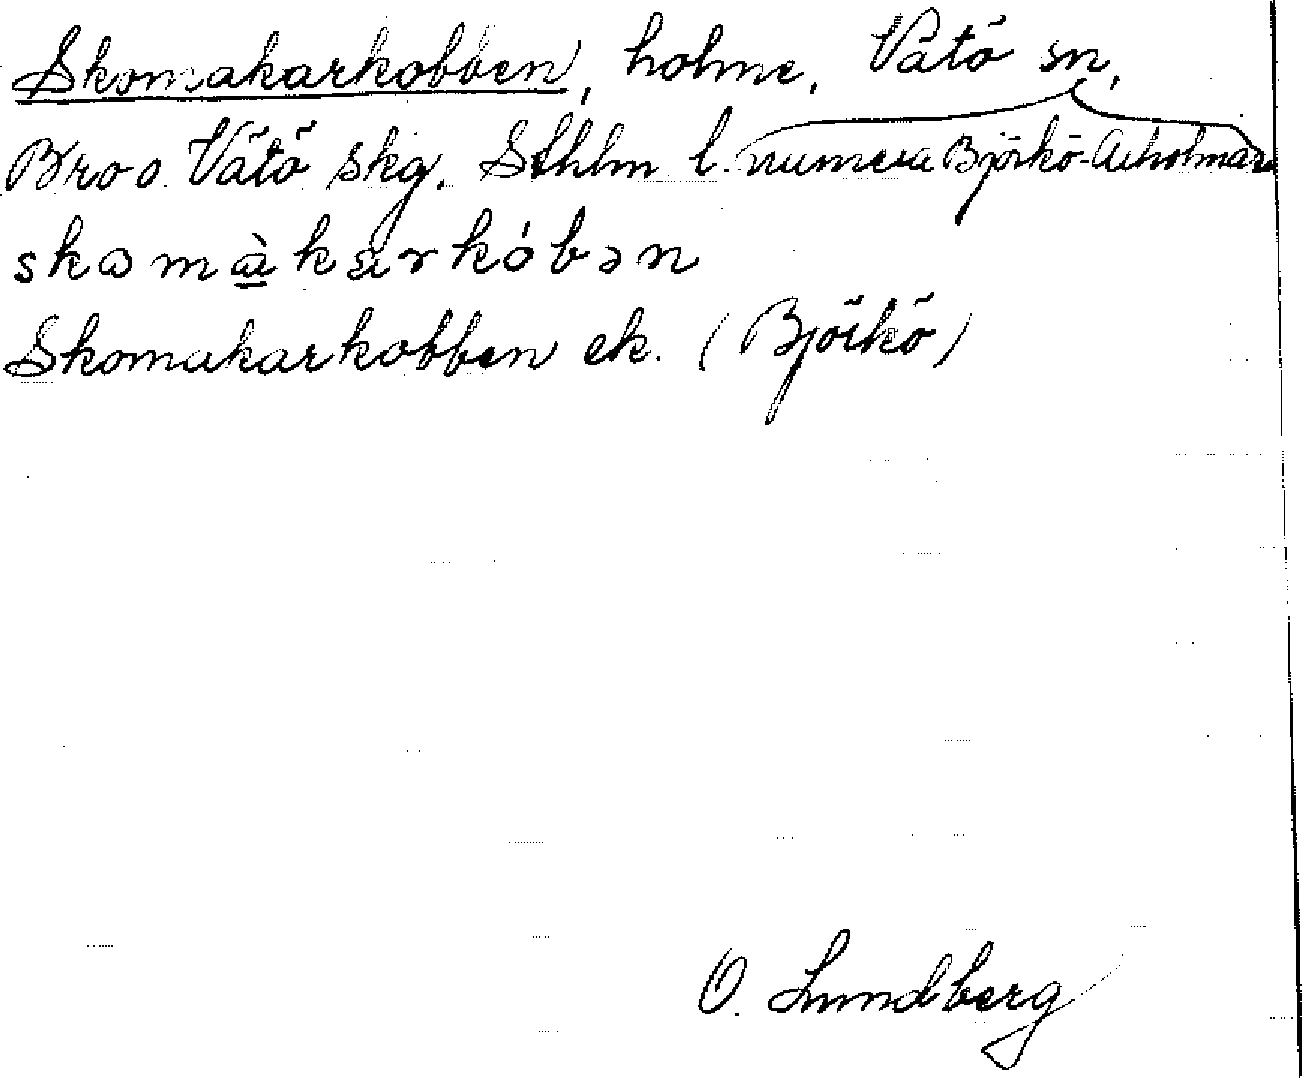 Skomakarkobben, holme, Vätö sn,
Bro o. Vätö skg. Sthlm l. numera Björkö-Arholma sn
skomὰkarkóbən
Skomakarkobben ek. (Björkö)
O. Lundberg